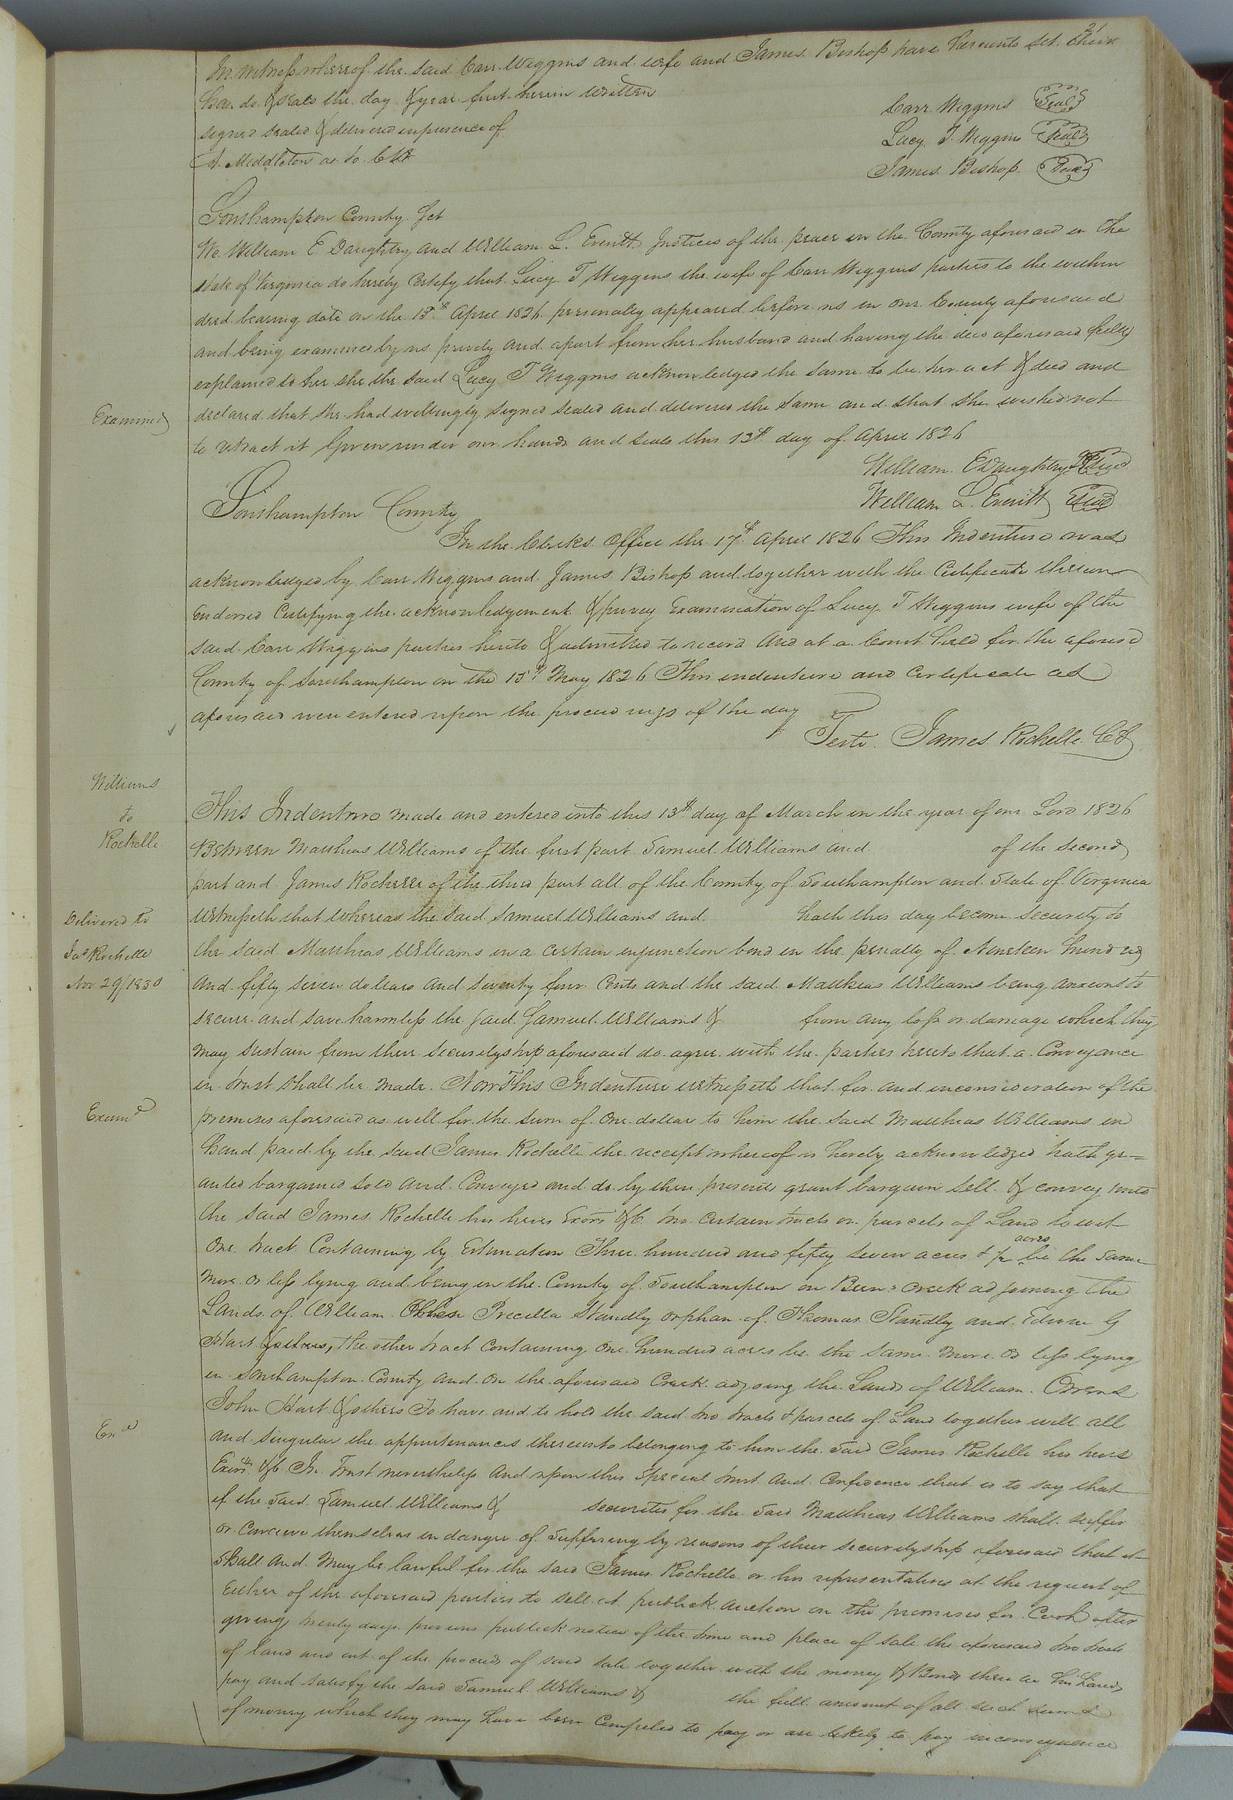 21
In witness whereof the said Carr Wiggins and wife and James Bishop have hereunto set their
hands & seals the day & year first herein written
Carr Wiggins Seal
signed sealed & delivered in presence of
Lucy T Wiggins Seal
A. Middleton as to
James Bishop Seal
Southampton County Sct
We William E Daughtry and William L. Everitt Justices of the peace in the County aforesaid in the
State of Virginia do hereby certify that Lucy T Wiggins the wife of Carr Wiggins parties to the within
deed bearing date on the 13th April 1826 personally appeared before us in our County aforesaid
and being examined by us privily and apart from her husband and having the deed aforesaid fully
explained to her she the said Lucy T Wiggins acknowledged the same to be her act & deed and
Examined
declared that she had willingly signed sealed and delivered the same and that she wished not
to retract it Given under our hands and seals this 13th day of April 1826
William E Daughtry Seal
William L. Everitt Seal
Southampton County
In the Clerks Office the 17th April 1826 This Indenture was
acknowledged by Carr Wiggins and James Bishop and together with the Certificate thereon
Endorsed Certifying the acknowledgement & privy Examination of Lucy T Wiggins wife of the
said Carr Wiggins parties hereto & admitted to record And at a Court held for the aforesd
County of Southampton on the 15th May 1826 This indenture and Certificate as
aforesaid were entered upon the proceedings of the day
Teste. James Rochelle CC
Williams
to
Rochelle
This Indenture made and entered into this 13th day of March in the year of our Lord 1826
Between Matthias Williams of the first part Samuel Williams and of the second
part and James Rochelle of the third part all of the County of Southampton and State of Virginia
Delivered to
Jas Rochelle
Nov 29/1830
Witnesseth that whereas the said Samuel Williams and hath this day become security to
the said Matthias Williams in a certain injunction bond in the penalty of Nineteen hundred
and fifty seven dollars and seventy four Cents and the said Matthias Williams being anxious to
secure and save harmless the said Samuel Williams & from any loss or damage which they
may sustain from their securityship aforesaid do agree with the parties hereto that a Conveyance
in trust shall be made. Now This Indenture witnesseth that for and in consideration of the
Examd
premises aforesaid as well for the sum of One dollar to him the said Matthias Williams in
hand paid by the said James Rochelle the receipt whereof is hereby acknowledged hath gr=
anted bargained sold and Conveyed and do by these presents grant bargain sell & convey unto
the said James Rochelle his heirs Exors &c two certain tracts or parcels of Land to wit
One tract Containing by Estimation Three hundred and fifty seven acres & acres be the same
more or less lying and being in the County of Southampton on creek adjoining the
Lands of William Precilla Standly orphan of Thomas Standly and Edwin G
Hart & others, the other tract containing One hundred acres be the same more or less lying
in Southampton County and on the aforesaid Creek adjoing the Lands of William Owens
John Hart & others To have and to hold the said two tracts & parcels of Land together with all
Exd
and singular the appurtenances thereunto belonging to him the said James Rochelle his heirs
Exors &c In Trust nevertheless and upon this special trust and confidence that is to say that
if the said Samuel Williams & securites for the said Matthias Williams shall suffer
or Conceive themselves in danger of suffering by reasons of their securityship aforesaid that it
shall and may be lawful for the said James Rochelle or his representatives at the request of
Either of the aforesaid parties to sell at publick auction on the premises for Cash after
giving twenty days previous publick notice of the time and place of sale the aforesaid two tracts
of land and out of the proceeds of said sale together with the money & Bonds then in his hands
pay and satisfy the said Samuel Williams & the full amount of all such sums
of money which they may have been compeled to pay or are likely to pay inconsequence